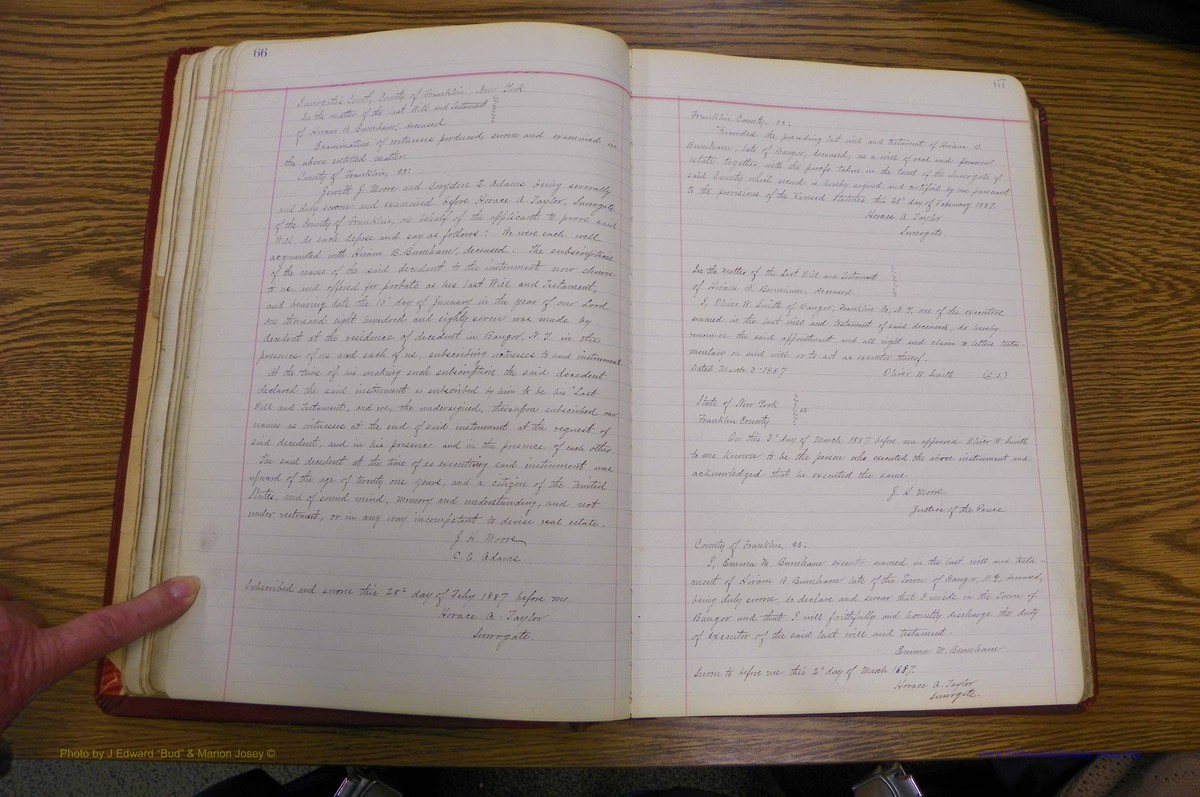 66
Surrogate's Court, County of Franklin New York
In the matter of the Last Will and Testament
of Hiram B. Burnham, deceased
Examination of witnesses produced, sworn and examined in
the above entitled matter.
County of Franklin, ss:
J. Moore and E. Adams being severally
and duly sworn and examined before Horace A. Taylor, Surrogate
of the County of Franklin, on behalf of the applicants to prove said
Will, do each depose and say as follows: We were each well
acquainted with Hiram B. Burnham, deceased. The subscription
of the name of the said decedent to the instrument now shown
to us, and offered for probate as his last Will and Testament,
and bearing date the day of January in the year of our Lord
one thousand eight hundred and eighty seven was made by
decedent at the residence of decedent in Bangor, N.Y. in the
presence of us and each of us, subscribing witnesses to said instrument.
At the time of his making such subscription the said decedent
declared the said instrument so subscribed by him to be his Last
Will and Testament, and we, the undersigned, thereupon subscribed our
names as witnesses at the end of said instrument at the request of
said decedent, and in his presence and in the presence of each other.
The said decedent at the time of so executing said instrument was
upward of the age of twenty one years, and a citizen of the United
States, and of sound mind, memory and understanding, and not
under restraint, or in any way incompetent to devise real estate.
Moore
C. E. Adams
Subscribed and sworn this 28th day of Feby 1887 before me
Horace A. Taylor
Surrogate.
67
Franklin County, ss:
Recorded the preceding last will and testament of Hiram B.
Burnham, late of Bangor, deceased, as a will of real and personal
estate together with the proofs taken in the Court of the Surrogate of
said County which record is hereby signed and certified by me pursuant
to the provisions of the Revised Statutes this 28" day of February 1887.
Horace A. Taylor
Surrogate
In the Matter of the Last Will and Testament
of Hiram B. Burnham, deceased
I, Oliver W. Smith of Bangor, Franklin Co, N.Y. one of the executors
named in the last will and testament of said deceased, do hereby
renounce the said appointment and all right and claim to letters testa-
mentary on said will or to act as executor thereof.
Dated March 3" 1887 Oliver W. Smith (L.S.)
State of New York
Franklin County ss
On this 3d day of March 1887 before me appeared Oliver W. Smith
to me known to be the person who executed the above instrument and
acknowledged that he executed the same
J. S. Moore
Justice of the Peace
County of Franklin, ss:
I, Emma M. Burnham executor named in the last will and testa-
ment of Hiram B. Burnham late of the Town of Bangor, N.Y. deceased,
being duly sworn, do declare and swear that I reside in the Town of
Bangor and that I will faithfully and honestly discharge the duty
of Executor of the said last will and testament
Emma M. Burnham
Sworn to before me this day of March 1887.
Horace A. Taylor
Surrogate.
Photo by J Edward "Bud" & Marion Josey ©